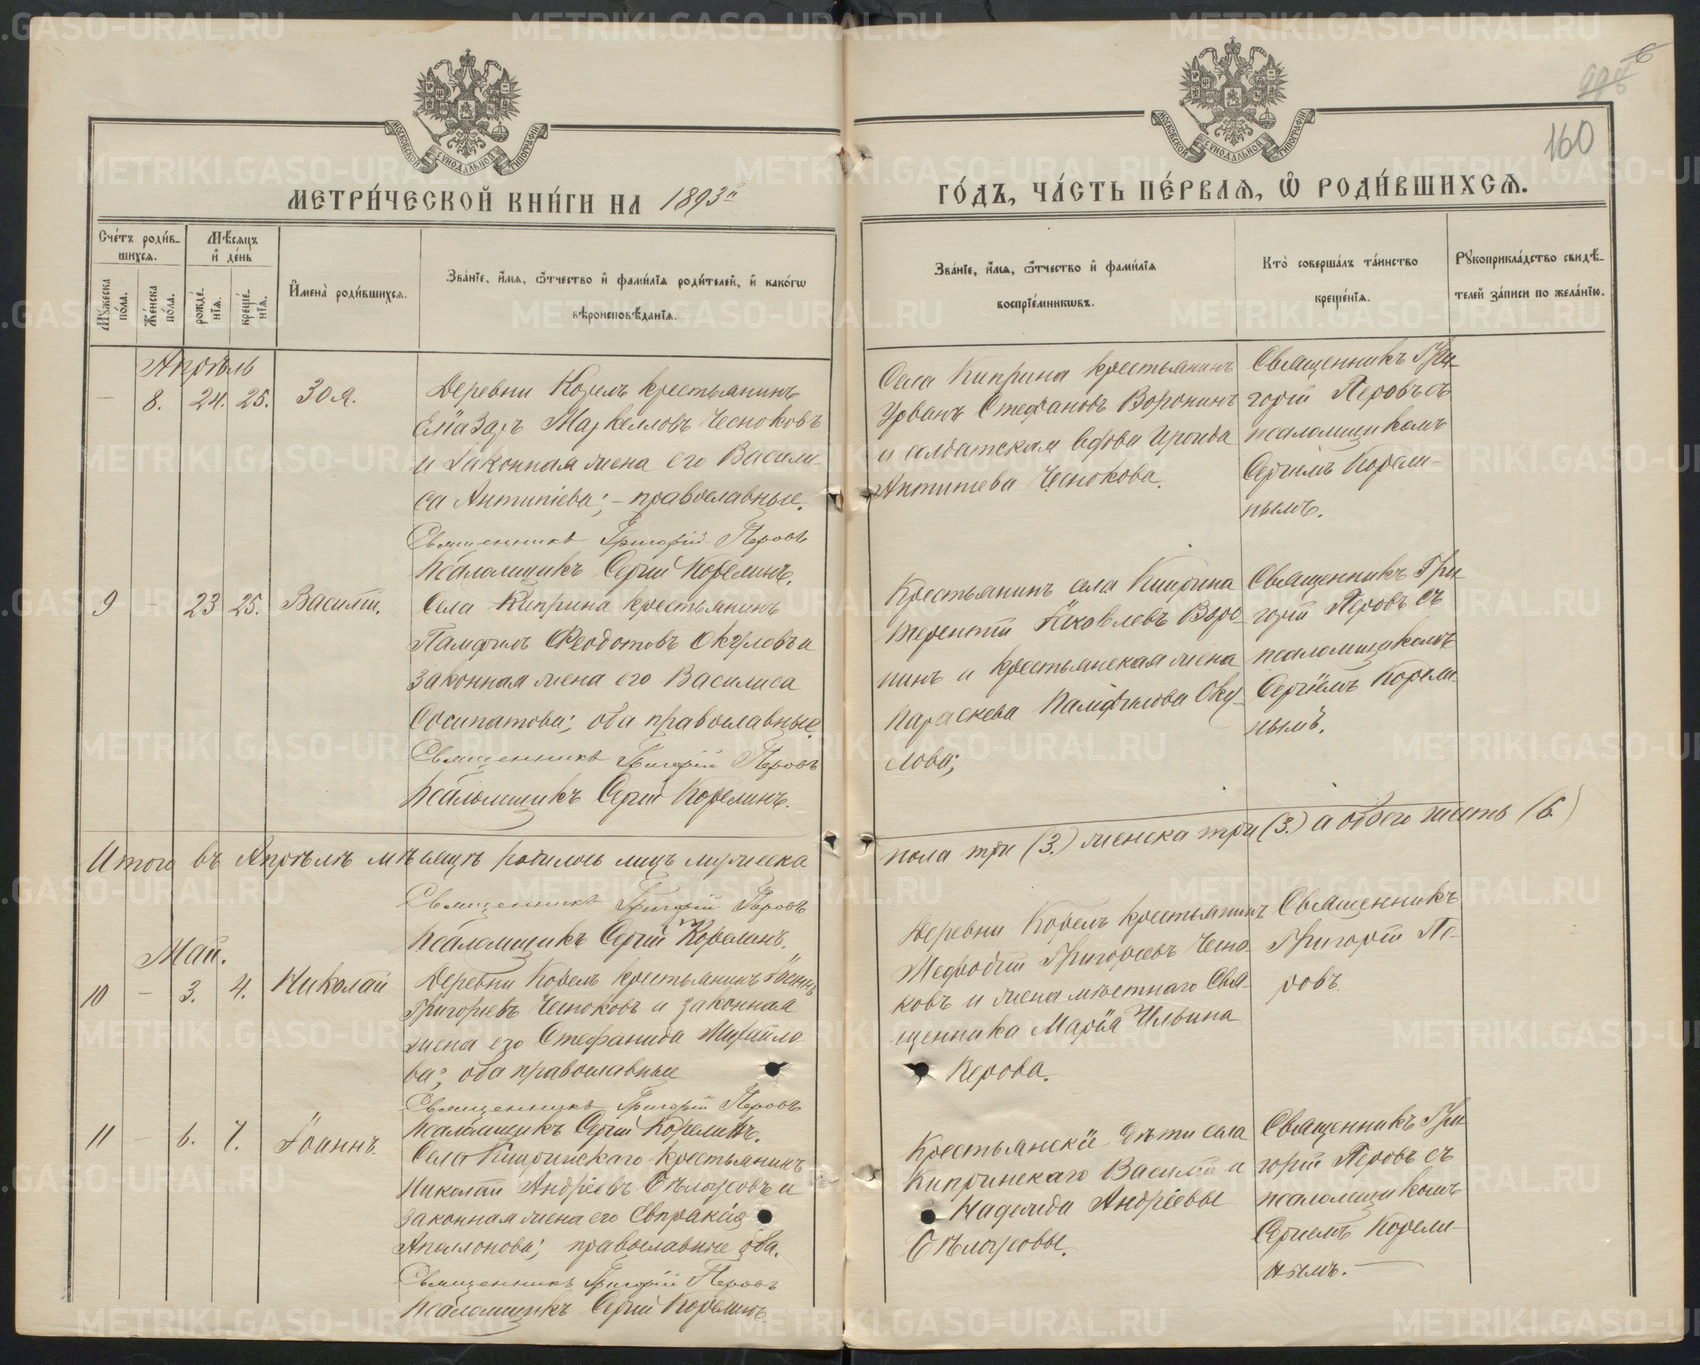 МЕТРИ́ЧЕСКОЙ КНИ́ГИ НА 1893й
ГО́ДЪ, ЧА́СТЬ ПЕ́РВАѦ, Ѡ҆ РОДИ́ВШИХСѦ.
160
МОСКОВСКОЙ СѴНОДАЛЬНОЙ ТИПОГРАФІИ
МОСКОВСКОЙ СѴНОДАЛЬНОЙ ТИПОГРАФІИ
Сче́тъ роди́в-
шихсѧ.
Мꙋ́жеска по́ла.
Же́нска по́ла.
Мѣ́сѧцъ и҆ де́нь
рожде́-нїѧ.
креще́-нїѧ.
И҆мена̀ роди́вшихсѧ.
Зва́нїе, и҆́мѧ, ѻ҆́тчество и҆ фами́лїѧ роди́телей, и҆ како́гѡ
вѣроисповѣ́данїѧ.
Зва́нїе, и҆́мѧ, ѻ҆́тчество и҆ фами́лїѧ
воспрїе́мникѡвъ.
Кто̀ соверша́лъ та́инство
креще́нїѧ.
Рꙋкоприкла́дство свидѣ́-
телей за́писи по жела́нїю.
Апрѣль
– 8. 24. 25. Зоя.
Деревни Козелъ крестьянинъ
Елїазаръ Маркелловъ Чесноковъ
и законная жена его Васили-
са Антипіева; – православные.
Священникъ Григорій Перовъ
Псаломщикъ Сергій Корелинъ.
Села Киприна крестьянинъ
Урванъ Стефановъ Воронинъ
и солдатская вдова Ироида
Антипіева Чеснокова.
Священникъ Гри-
горій Перовъ съ
псаломщикомъ
Сергіемъ Корели-
нымъ.
9 – 23 25. Василій.
Села Киприна крестьянинъ
Памфилъ Феодотовъ Окуловъ и
законная жена его Василиса
Сосипатова; оба православные.
Священникъ Григорій Перовъ
Псаломщикъ Сергій Корелинъ.
Крестьянинъ села Киприна
Терентій Іяковлевъ Воро-
нинъ и крестьянская жена
Параскева Памфилова Оку-
лова;
Священникъ Гри-
горій Перовъ съ
псаломщикомъ
Сергіемъ Корели-
нымъ.
Итого въ Апрѣлѣ мѣсяцѣ родилось лицъ мужеска
пола три (3.) женска три (3.) а обоего шесть (6.)
Священникъ Григорій Перовъ
Псаломщикъ Сергій Корелинъ.
Май.
10 – 3. 4. Николай
Деревни Козелъ крестьянинъ
Григорьевъ Чесноковъ и законная
жена его Стефанида Михайло-
ва; оба православные
Священникъ Григорій Перовъ
Псаломщикъ Сергій Корелинъ.
Деревни Козелъ крестьянинъ
Мефодій Григорьевъ Чесно-
ковъ и жена мѣстнаго Свя-
щенника Марія Ильина
Перова.
Священникъ
Григорій Пе-
ровъ.
11 – 6. 7. Іоаннъ.
Села Кипринскаго крестьянинъ
Николай Андріевъ Бѣлоусовъ и
законная жена его Евпраксія
Аполлонова; православные оба.
Священникъ Григорій Перовъ
Псаломщикъ Сергій Корелинъ.
Крестьянскіе дѣти села
Кипринскаго Василій и
Надежда Андріевы
Бѣлоусовы.
Священникъ Гри-
горій Перовъ съ
псаломщикомъ
Сергіемъ Корели-
нымъ. –
METRIKI.GASO-URAL.RU